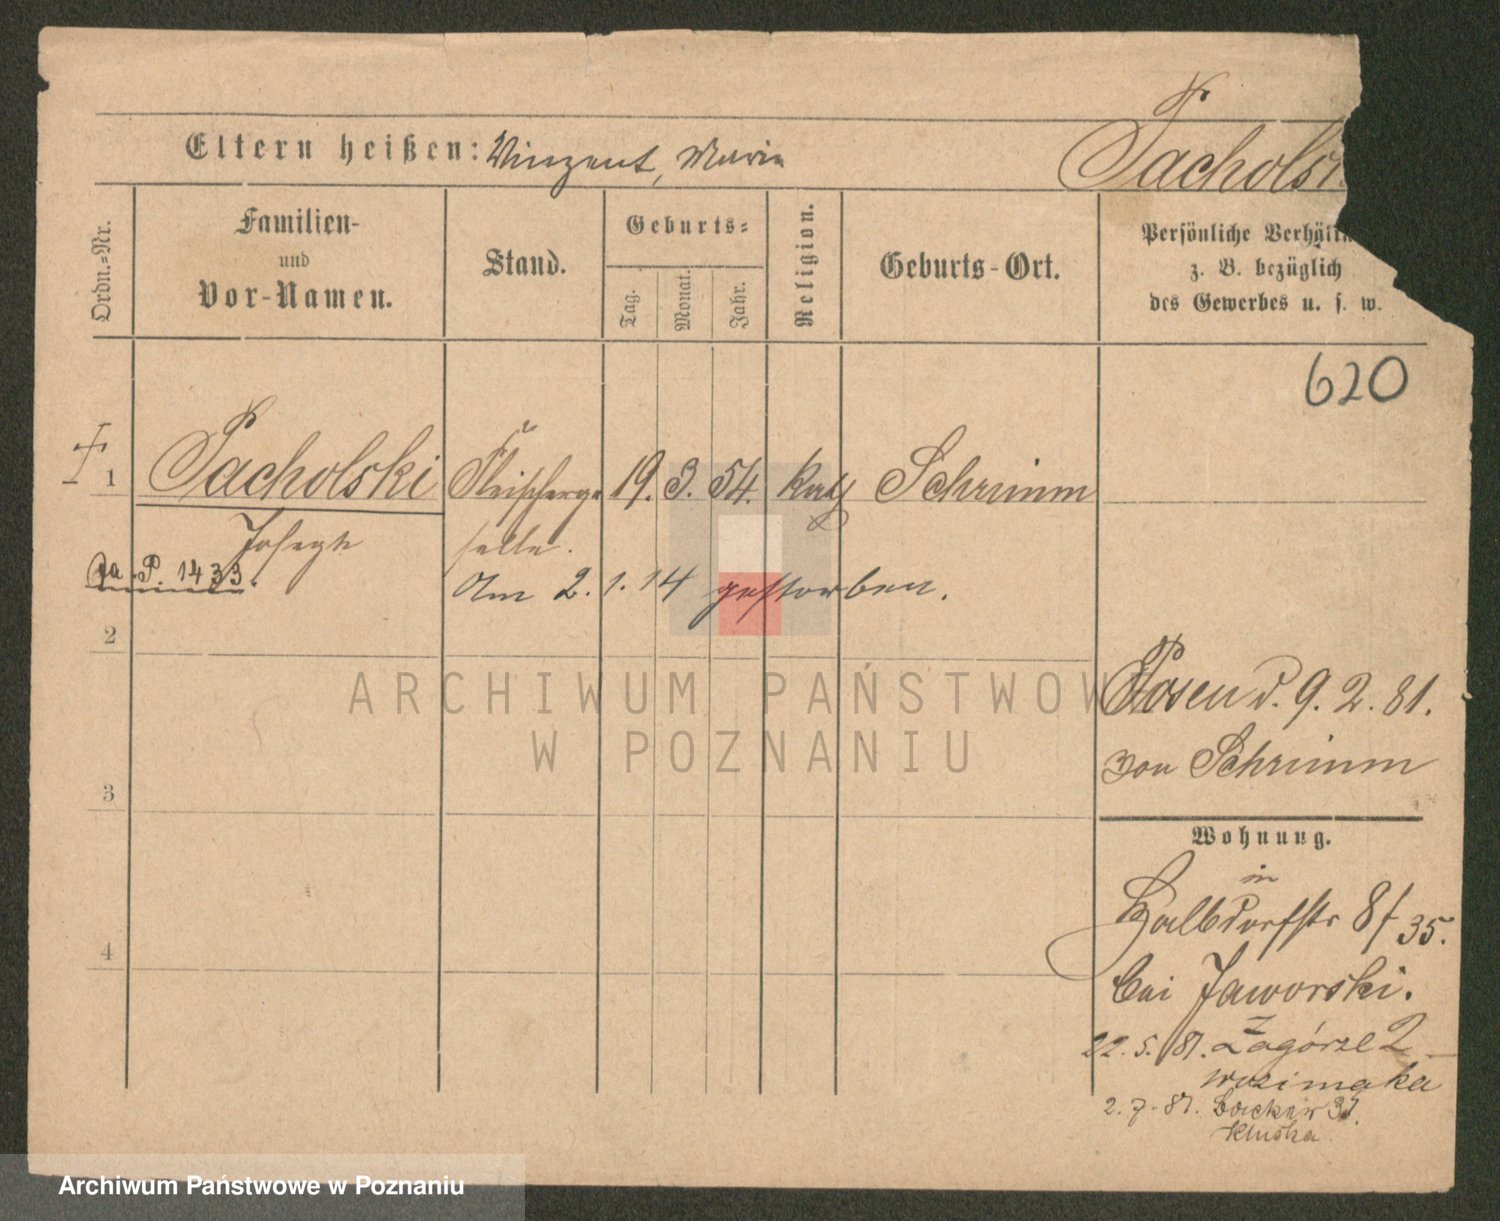 Eltern heißen: Vinzent, Maria
Pacholsk
Ordn.-Nr.
Familien-
und
Vor-Namen.
Stand.
Geburts-
Tag.
Monat.
Jahr.
Religion.
Geburts-Ort.
Persönliche Verhältn
z. B. bezüglich
des Gewerbes u. s. w.
620
1 Pacholski Fleischerge 19. 3. 54. kath Schrimm
Joseph selle.
P. 1433.
Am 2. 1. 14 gestorben.
2
Posen d. 9. 2. 81.
von Schrimm
3
Wohnung.
in
Halbdorfstr 8/35.
bei Jaworski.
4
22. 5. 81. Zagórze 2
Wozimaka
2. 7. 81. Bäcker 31.
Kluska
ARCHIWUM PAŃSTWOW
W POZNANIU
Archiwum Państwowe w Poznaniu